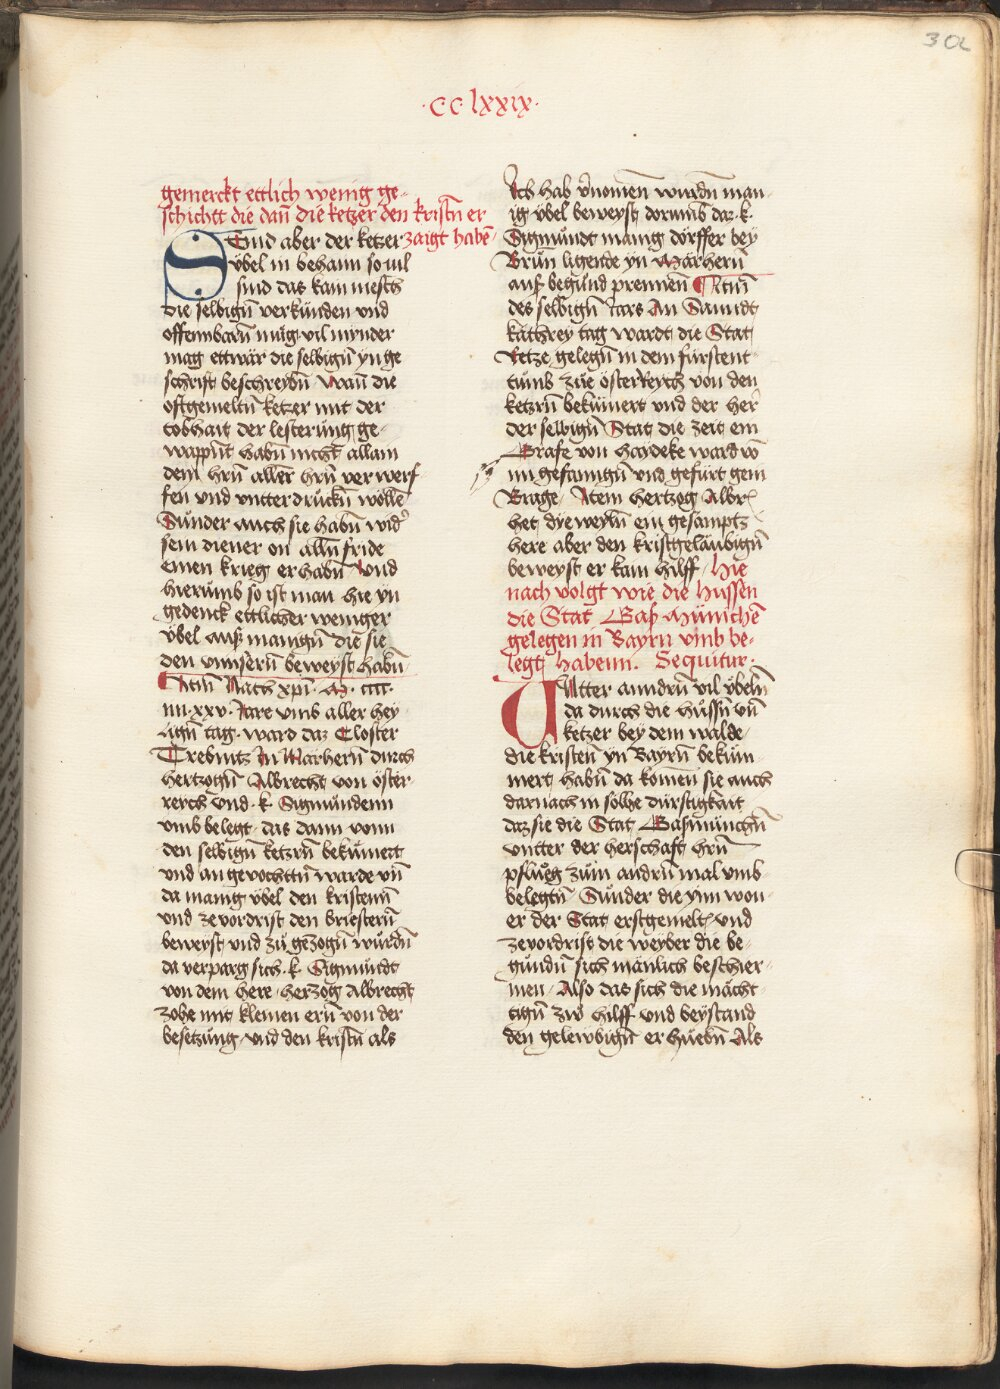 302
·CC lxxix·
gemerckt ettlich wenig ge-
schichtt die dañ die ketzer den kristñ er
Sund aber der ketzer zaigt habē
ÿbel in behann so uil
sind das kain mesch
die selbigñ verkünden vnd
offennbarñ müg· vil mÿnder
mag ettwar die selbigñ ÿn ge
schrift beschreybñ wañ die
oftgemeltñ ketzer mit der
tobhait der lesterüng ge-
wappñt habñ nicht allain
dem hrñ aller hrñ verwerf
fen vnd vntterdrückñ wollē
Sünder auch sie habñ wid᷑
sein diener on allñ fride
einen krieg erhabñ Vnd
hierümb so ist man hie ÿn
gedenck ettlicher weniger
ÿbel auß manigñ die sie
den vnnserñ beweÿst habñ
Itm̃ Nach xpi· M· cccc·
xxv· Jare vmb aller hey
ligñ tag· ward daz Closter
Trebnitz In Märherñ durch
hertzogñ Albrecht von öster-
reich vnd· k· Sigmündenn
vmbbelegt· das dann vonn
den selbigñ ketzrñ bekümert
vnd angevochttñ warde vñ
da manig ÿbel den kristennn
vnd zevordrist den briesterñ
beweÿst vnd zü gezogñ würdñ
da verparg sich· k· Sigmündt
von dem here· hertzog Albrecht
zohe mit kleinen erñ von der
besetzüng· vnd den kristñ als
Ich hab v̾nomen wurdñ man-
ig ÿbel beweyst dorümb daz· k·
Sigmündt manig dörffer beÿ
Brün ligende ÿn Märherñ
auß begünd prennen Itm̃
des selbigñ Jars An Sanndt
kathrey tag wardt die Stat
Retze gelegñ in dem fürstent-
tümb züe österreych von den
ketzrñ bekümert vnd der her̃
der selbigñ Stat die zeit ein
Grafe von hardeke ward vō
in gefanngñ vnd gefürt gein
Brage· Item hertzog Albr-
het dieweylñ ein gesamptz
here aber den kristgeläubigñ
beweyst er kain hilff· Hie
nach volgt wie die Hussen
die Stat Baß Münichē
gelegen in Bayrn vmb be-
legt habenn. Sequitur·
Untter anndrñ vil ÿbelñ
da durch die hüssñ vñ
ketzer bey dem walde
die kristen ÿn Bayrñ bekün-
mert habñ da komen sie auch
darnach in solhe dürstigkait
daz sie die Stat Basmünchñ
vntter der herschaft hrñ
pflüeg züm andrñ mal vmb
belegtñ· Sünder die ynn won-
er der Stat erstgemelt vnd
zevordrist die weyber die be-
gündñ sich mänlich beschier-
men· Also das sich die mächt-
tigñ zw hilff vnd beÿstand
den gelewbigñ erhüebñ Als